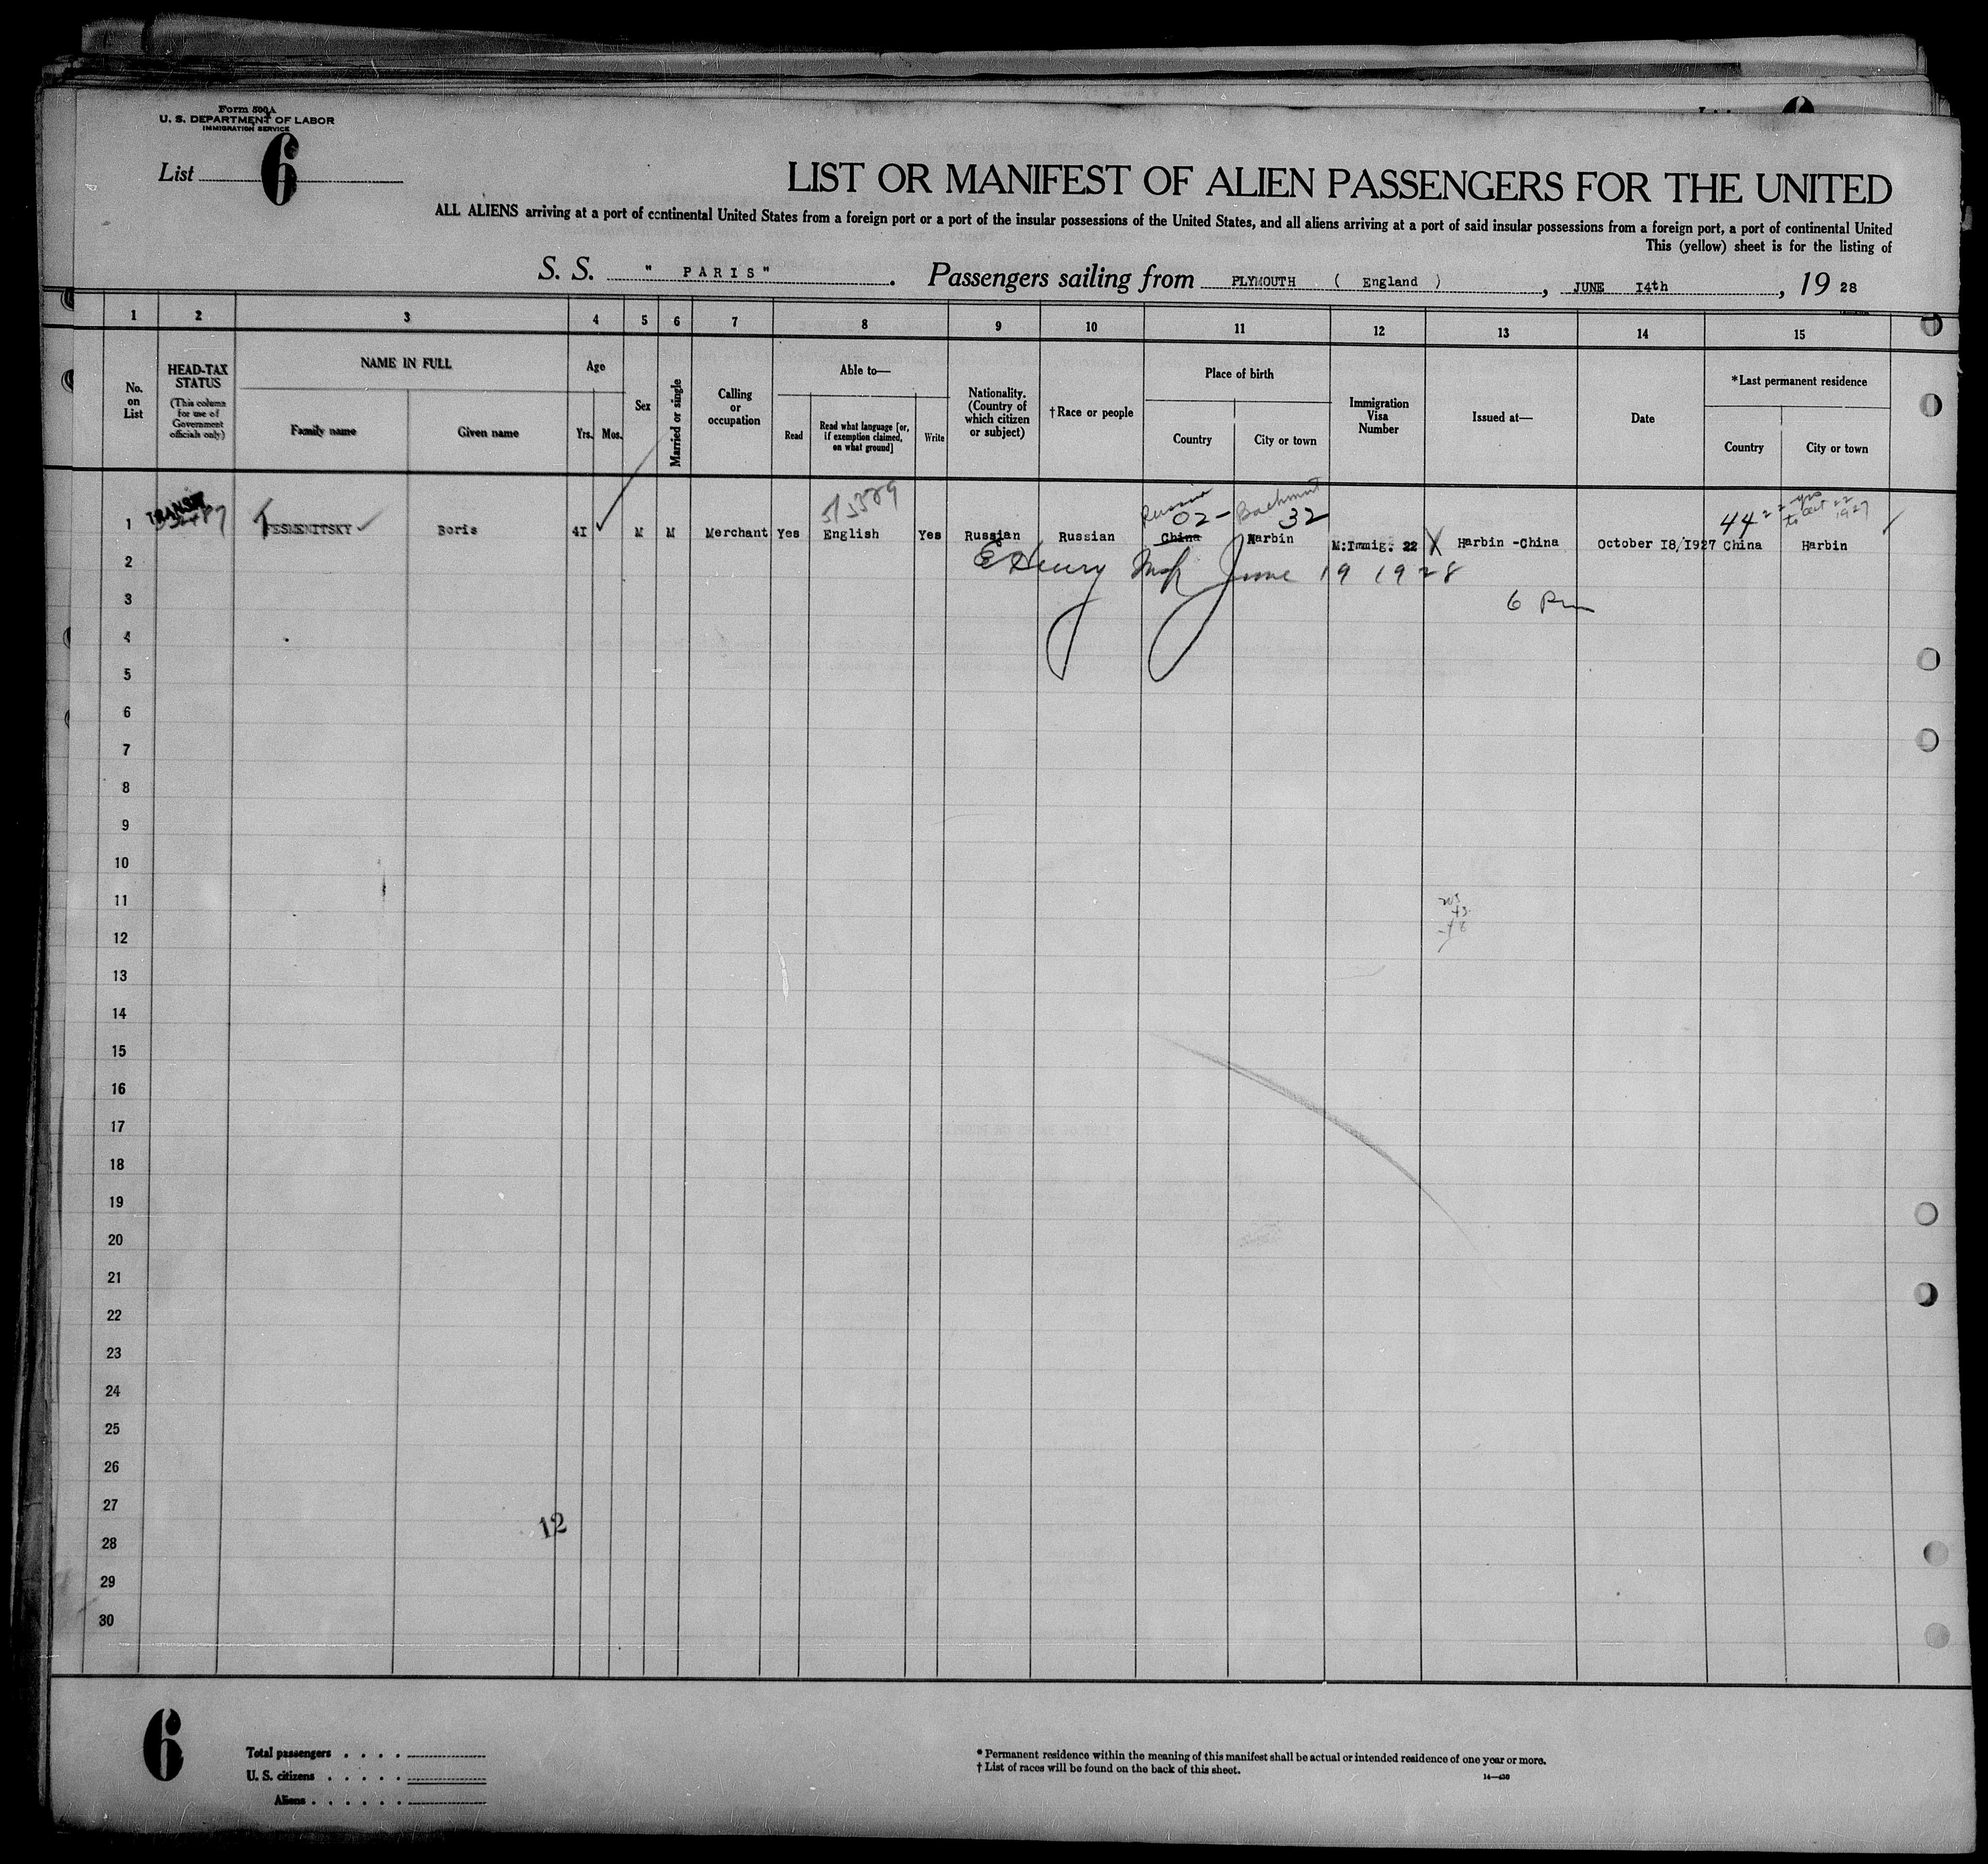 Form 500A
U. S. DEPARTMENT OF LABOR
IMMIGRATION SERVICE
List 6
LIST OR MANIFEST OF ALIEN PASSENGERS FOR THE UNITED
ALL ALIENS arriving at a port of continental United States from a foreign port or a port of the insular possessions of the United States, and all aliens arriving at a port of said insular possessions from a foreign port, a port of continental United
This (yellow) sheet is for the listing of
S. S. " PARIS" . Passengers sailing from PLYMOUTH ( England ) , JUNE I4th , 19 28
1 2 3 4 5 6 7 8 9 10 11 12 13 14 15
No. on List
HEAD-TAX STATUS
(This column for use of Government officials only)
NAME IN FULL
Family name
Given name
Age
Yrs. Mos.
Sex
Married or single
Calling or occupation
Able to—
Read
Read what language [or, if exemption claimed, on what ground]
Write
Nationality. (Country of which citizen or subject)
†Race or people
Place of birth
Country
City or town
Immigration Visa Number
Issued at—
Date
*Last permanent residence
Country
City or town
TRANSIT
Russia Bachmut
02- 32
44 22 yrs
to Oct 22
1927
1 Boris 4I M M Merchant Yes English Yes Russian Russian China Harbin M:Immig. 22 X Harbin -China October I8/I927 China Harbin
E Henry Insp June 19 1928
6 Pm
2
3
4
5
6
7
8
9
10
11
12
13
14
15
16
17
18
19
20
21
22
23
24
25
26
27
12
28
29
30
6
Total passengers . . . .
U. S. citizens . . . . .
Aliens . . . . . .
* Permanent residence within the meaning of this manifest shall be actual or intended residence of one year or more.
† List of races will be found on the back of this sheet.